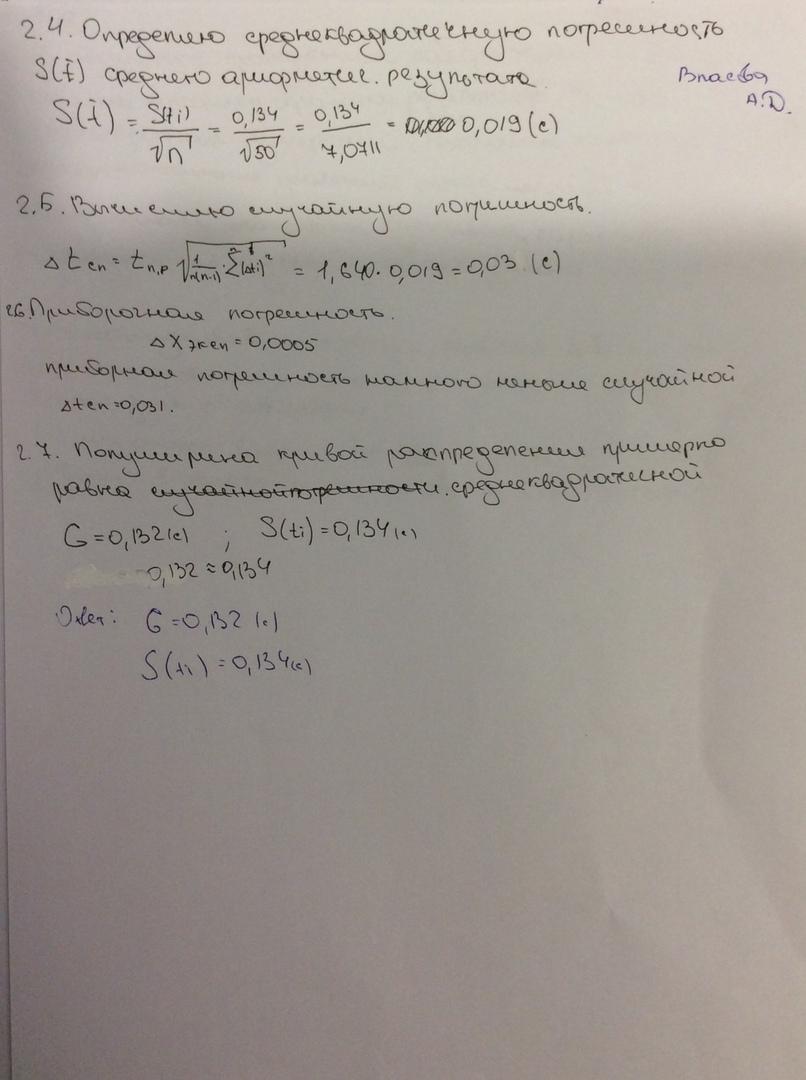 2.4. Определяю среднеквадратичную погрешность
S(t̄) среднего арифметич. результата.
Власова
А.Д.
S(t̄) = S(ti)/√n = 0,134/√50 = 0,134/7,0711 = 0,019 (с)
2.5. Вычисляю случайную погрешность.
Δtсл = tn,p √(1/n(n-1) · Σ(Δti)²) = 1,640 · 0,019 = 0,03 (с)
2.6. Приборочная погрешность.
ΔXэксп = 0,0005
приборная погрешность намного меньше случайной
Δtсл = 0,031.
2.7. Полуширина кривой распределения примерно
равна случайной погрешности. среднеквадратичной
G = 0,132 (с) ; S(ti) = 0,134 (с)
0,132 ≈ 0,134
Ответ: G = 0,132 (с)
S(ti) = 0,134 (с)